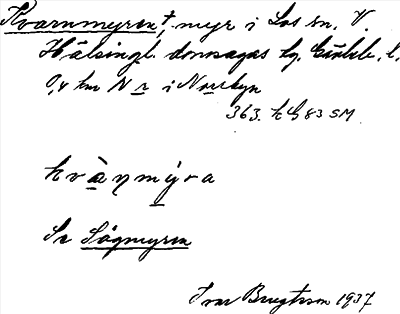 Kvarnmyren†, myr i Los sn. V.
Hälsingl. domsagas tg. Gävleb. l.
0,4 km N r i Norrbyn
363. h G 83 SM
kvànmýra
Se Sågmyren
Ivar Bengtsson 1937